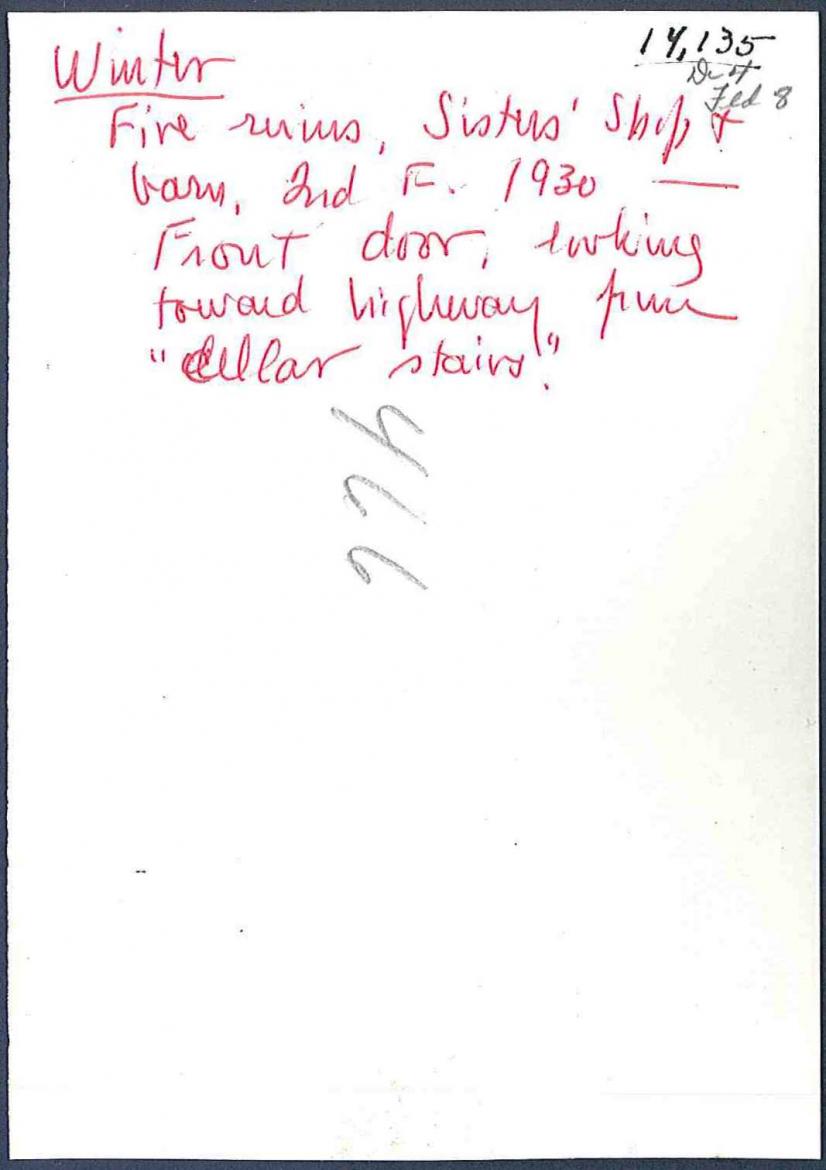 14,135
Dr 4
Fld 8
Winter
Fire ruins, Sisters' Shop &
barn, 2nd F. 1930 —
Front door, looking
toward highway from
"cellar stairs".
466